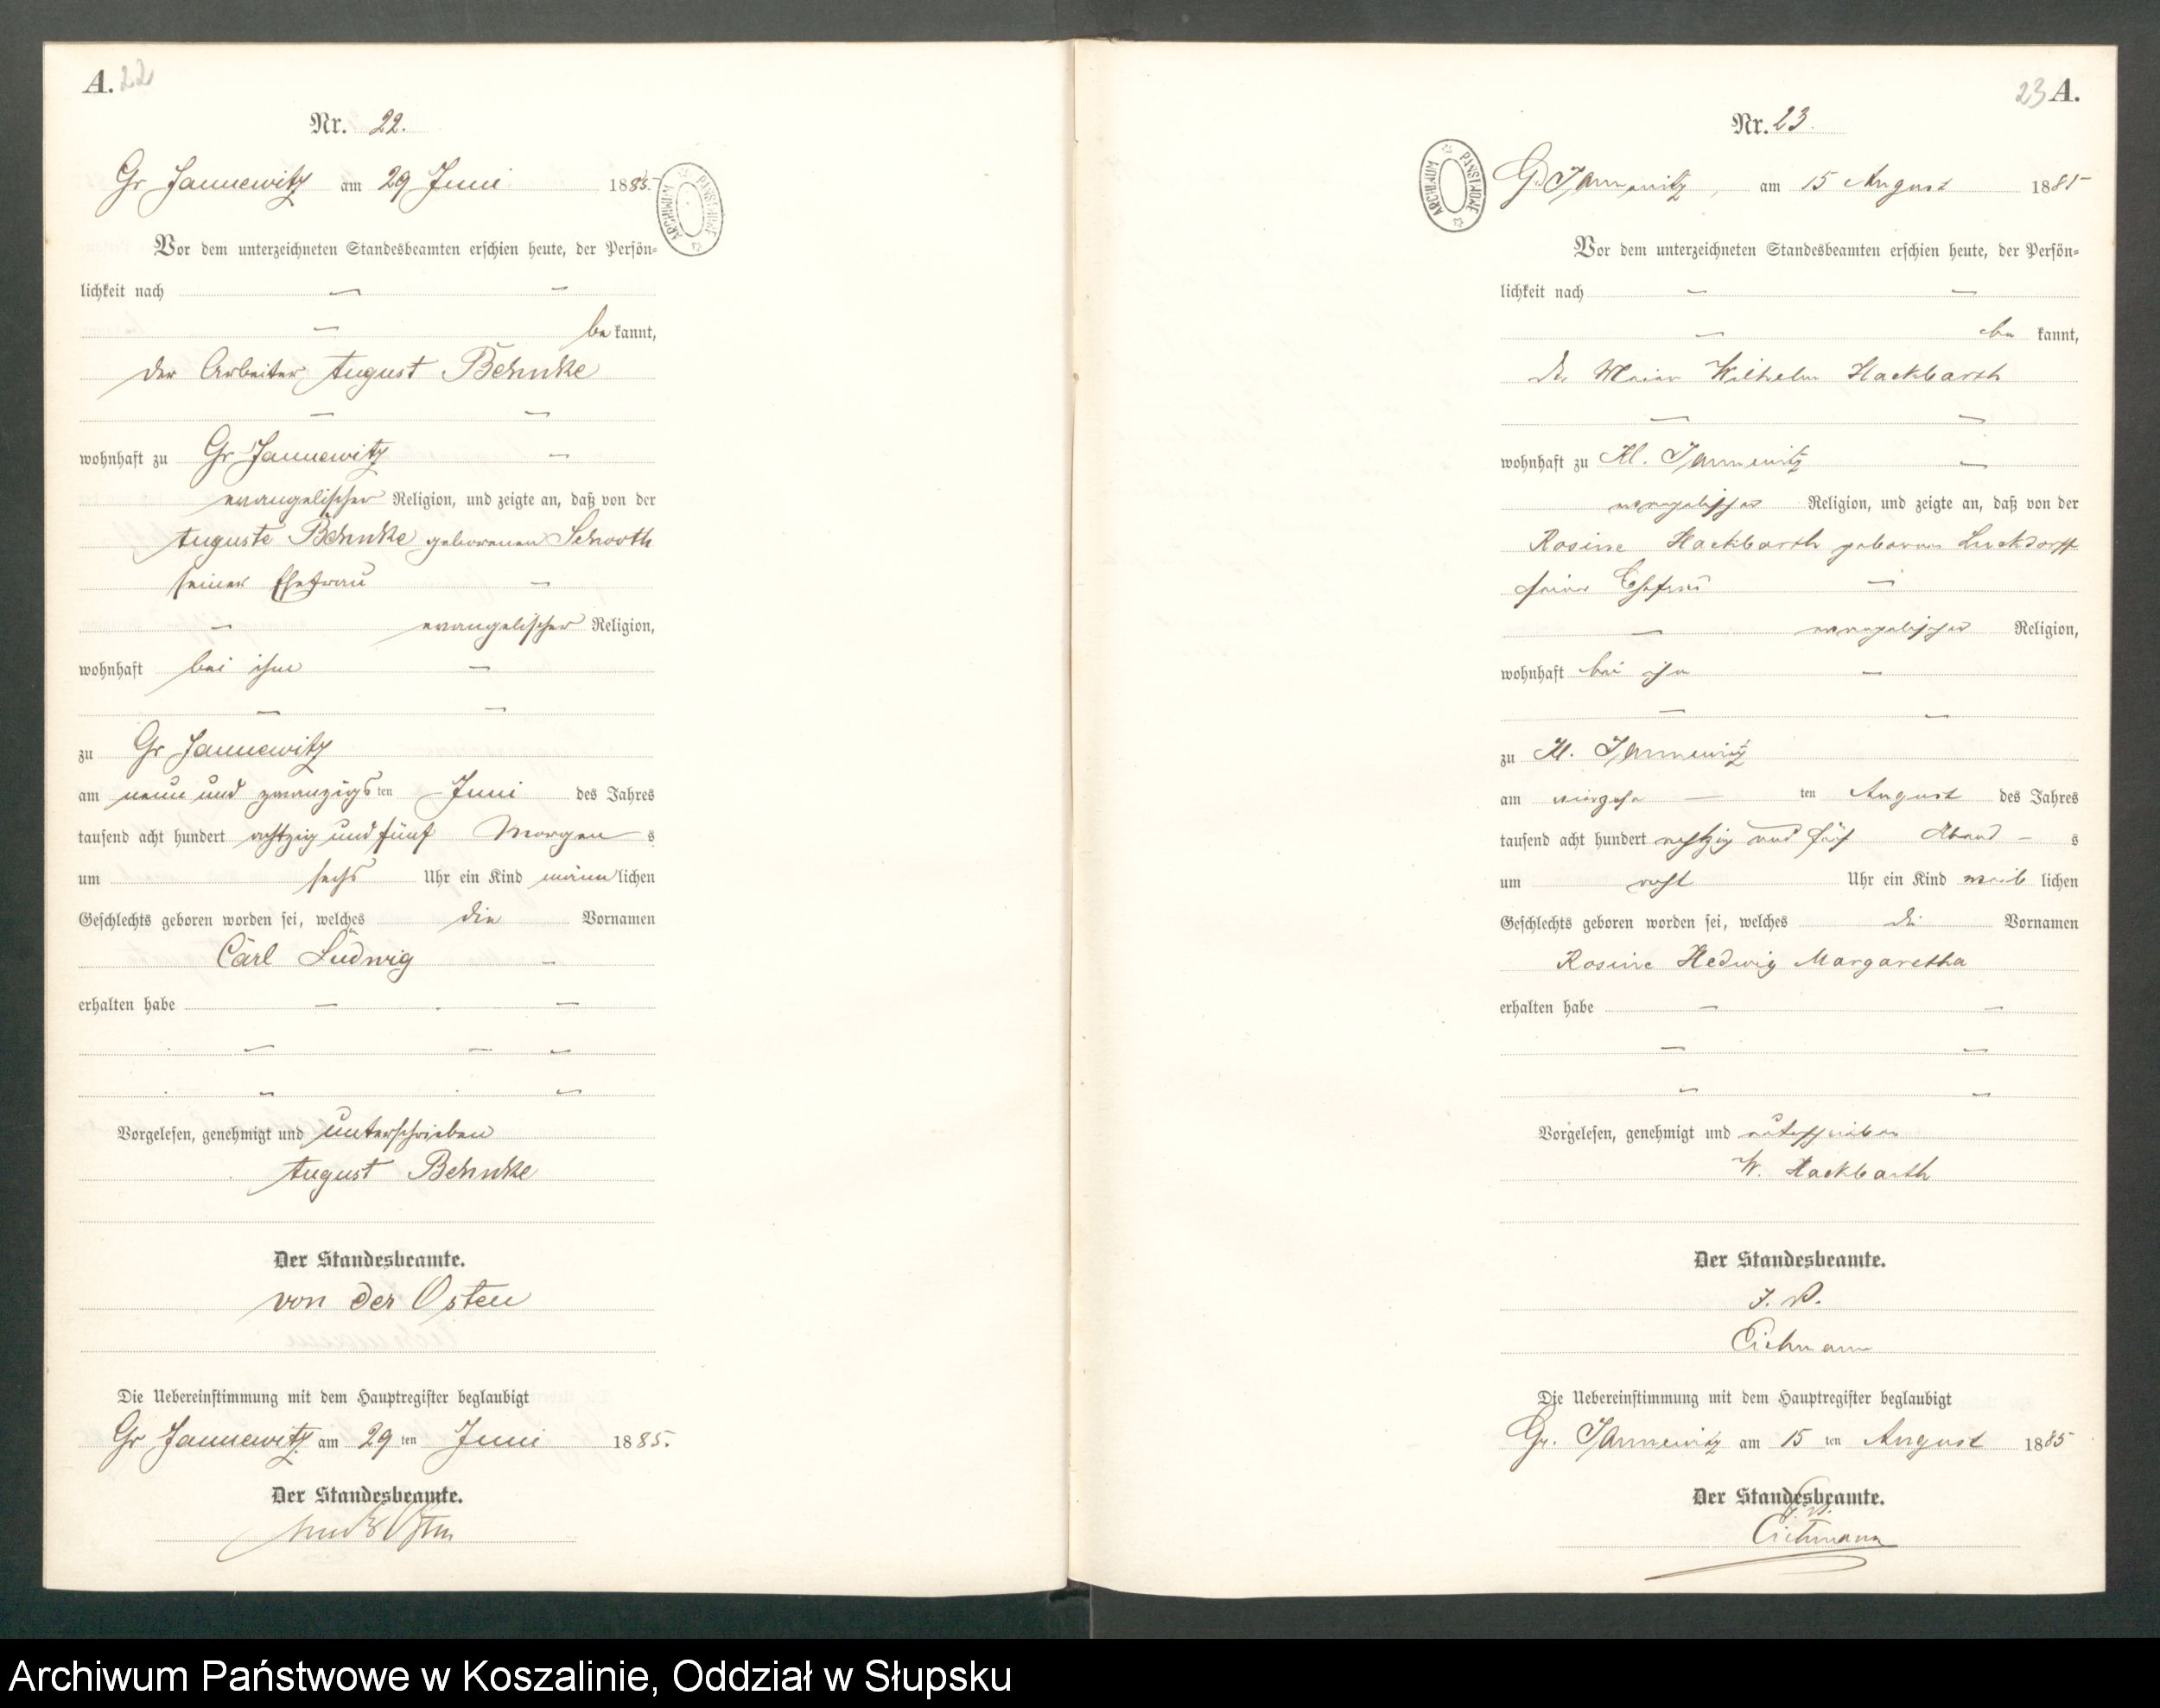 A. 22
Nr. 22.
Gr Jannewitz am 29 Juni 1885.
ARCHIWUM PAŃSTWOWE
Vor dem unterzeichneten Standesbeamten erschien heute, der Persön-
lichkeit nach — —
— be kannt,
der Arbeiter August Behnke
— —
wohnhaft zu Gr Jannewitz —
evangelischer Religion, und zeigte an, daß von der
Auguste Behnke geborenen
seiner Ehefrau —
— evangelischer Religion,
wohnhaft bei ihm —
— —
zu Gr Jannewitz
am neun und zwanzigs ten Juni des Jahres
tausend acht hundert achtzig und fünf Morgen s
um sechs Uhr ein Kind männ lichen
Geschlechts geboren worden sei, welches die Vornamen
Carl Ludwig —
erhalten habe — —
— — —
— —
Vorgelesen, genehmigt und unterschrieben
August Behnke
Der Standesbeamte.
von der Osten
Die Uebereinstimmung mit dem Hauptregister beglaubigt
Gr Jannewitz am 29 ten Juni 1885.
Der Standesbeamte.
von der Osten
23 A.
Nr. 23.
ARCHIWUM PAŃSTWOWE
Gr Jannewitz, am 15 August 1885
Vor dem unterzeichneten Standesbeamten erschien heute, der Persön-
lichkeit nach — —
— be kannt,
der Meier Wilhelm Hackbarth
— —
wohnhaft zu Kl. Jannewitz —
evangelischer Religion, und zeigte an, daß von der
Rosine Hackbarth geborenen Luckdorff
seiner Ehefrau —
— evangelischer Religion,
wohnhaft bei ihm —
— —
zu Kl. Jannewitz
am vierzehn — ten August des Jahres
tausend acht hundert achtzig und fünf Abend — s
um acht Uhr ein Kind weib lichen
Geschlechts geboren worden sei, welches die Vornamen
Rosine Hedwig Margaretha
erhalten habe — —
— —
— —
Vorgelesen, genehmigt und unterschrieben
W. Hackbarth
Der Standesbeamte.
J. V.
Eichmann
Die Uebereinstimmung mit dem Hauptregister beglaubigt
Gr. Jannewitz am 15 ten August 1885
Der Standesbeamte.
J. V.
Eichmann
Archiwum Państwowe w Koszalinie, Oddział w Słupsku